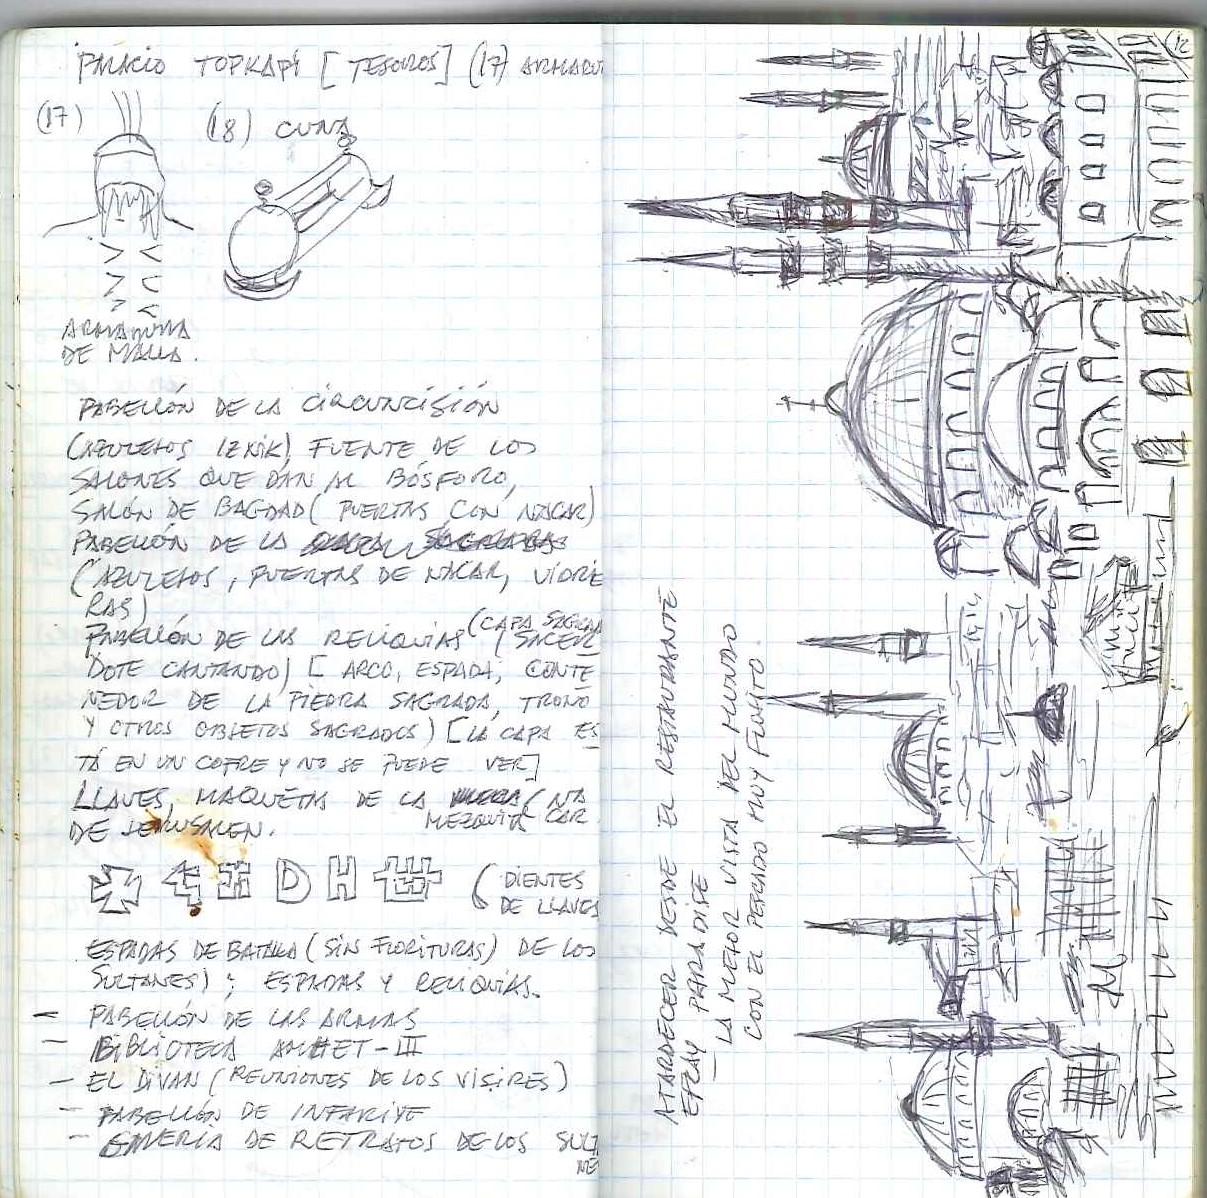 PALACIO TOPKAPI [TESOROS] (17) ARMADU
(17) (18) CUNA
ARMADURA
DE MALLA.
PABELLÓN DE LA CIRCUNCISIÓN
(AZULEJOS IZNIK) FUENTE DE LOS
SALONES QUE DAN AL BÓSFORO,
SALÓN DE BAGDAD (PUERTAS CON NACAR)
PABELLÓN DE LA
(AZULEJOS, PUERTAS DE NACAR, VIDRIE
RAS)
PABELLÓN DE LAS RELIQUIAS (CAPA SAGRADA
(SACER
DOTE CANTANDO) [ARCO, ESPADA, CONTE
NEDOR DE LA PIEDRA SAGRADA, TRONO
Y OTROS OBJETOS SAGRADOS) [LA CAPA ES
TÁ EN UN COFRE Y NO SE PUEDE VER]
LLAVES, MAQUETAS DE LA (NA
MEZQUITA CAR
DE JERUSALEN.
(DIENTES
DE LLAVES
ESPADAS DE BATALLA (SIN FLORITURAS) DE LOS
SULTANES); ESPADAS Y RELIQUIAS.
- PABELLÓN DE LAS ARMAS
- BIBLIOTECA AHMET-III
- EL DIVAN (REUNIONES DE LOS VISIRES)
- PABELLÓN DE INFARIYE
- GALERÍA DE RETRATOS DE LOS SULTA
NES
12
ATARDECER DESDE EL RESTAURANTE
EFZAY PARADISE
- LA MEJOR VISTA DEL MUNDO
CON EL PESCADO MUY FLOJITO.